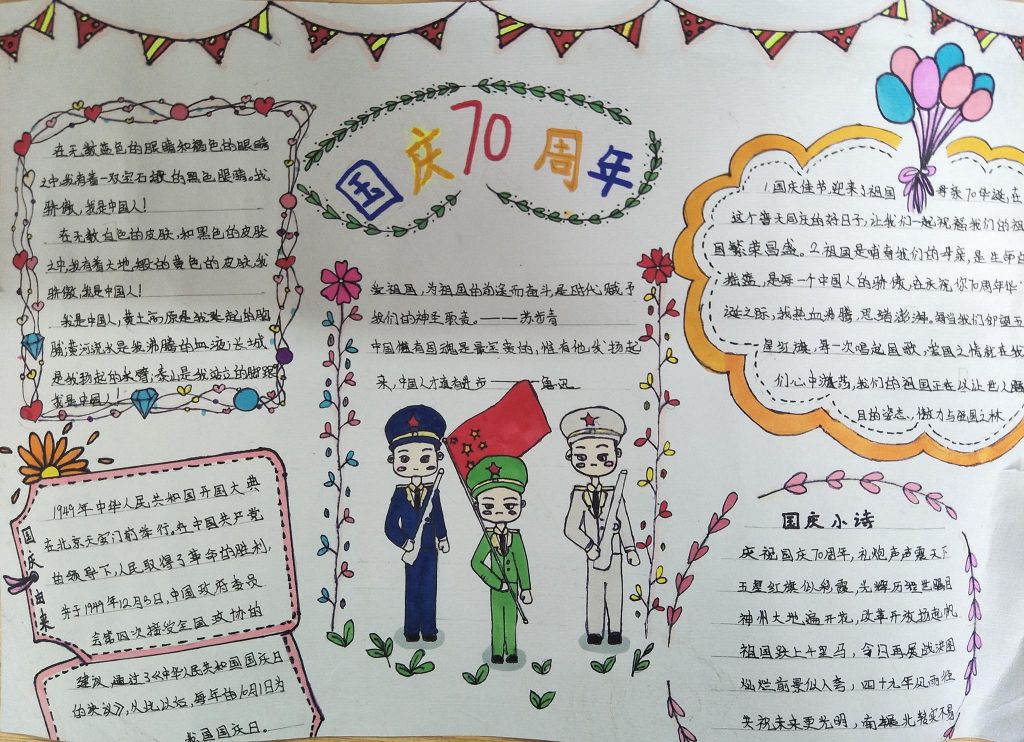 国庆70周年
在无数蓝色的眼睛和褐色的眼睛
之中,我有着一双宝石般的黑色眼睛,我
骄傲,我是中国人!
在无数白色的皮肤,和黑色的皮肤
之中,我有着大地般的黄色的皮肤,我
骄傲,我是中国人!
我是中国人,黄土高原是我挺起的胸
脯,黄河流水是我沸腾的血液,长城
是我扬起的手臂,泰山是我站立的脚跟
我是中国人!
爱祖国,为祖国的前途而奋斗,是时代赋予
我们的神圣职责。——苏步青
中国惟有国魂是最宝贵的,惟有他发扬起
来,中国人才有真进步——鲁迅
1.国庆佳节,迎来了祖国母亲70华诞,在
这个普天同庆的好日子,让我们一起祝福我们的祖
国繁荣昌盛。2.祖国是哺育我们的母亲,是生命的
摇篮,是每一个中国人的骄傲,在庆祝你70周年华
诞之际,我热血沸腾,思绪澎湃。每当我们仰望五
星红旗,每一次唱起国歌,爱国之情就在我
们心中激荡,我们的祖国正在以让世人瞩
目的姿态,傲立与强国之林
国庆由来
1949年中华人民共和国开国大典
在北京天安门前举行。在中国共产党
的领导下,人民取得了革命的胜利,
并于1949年12月3日,中国政府委员
会第四次接受全国政协的
建议,通过了《中华人民共和国国庆日
的决议》,从此以后,每年的10月1日为
我国国庆日。
国庆小诗
庆祝国庆70周年,礼炮声声震天下
五星红旗似彩霞,光辉历程世瞩目
神州大地遍开花,改革开放扬起帆
祖国跃上千里马,今日再展战洪图
灿烂前景似入卷,四十九年风雨径
共祝未来更光明,南北转实不易